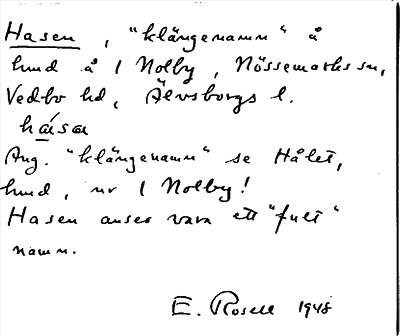 Hasen, "klängenamn" å
hmd å 1 Nolby, Nössemarks sn,
Vedbo hd, Älvsborgs l.
hásaɴ
Ang. "klängenamn" se Hålet,
hmd, nr 1 Nolby!
Hasen anses vara ett "fult"
namn.
E. Rosell 1948